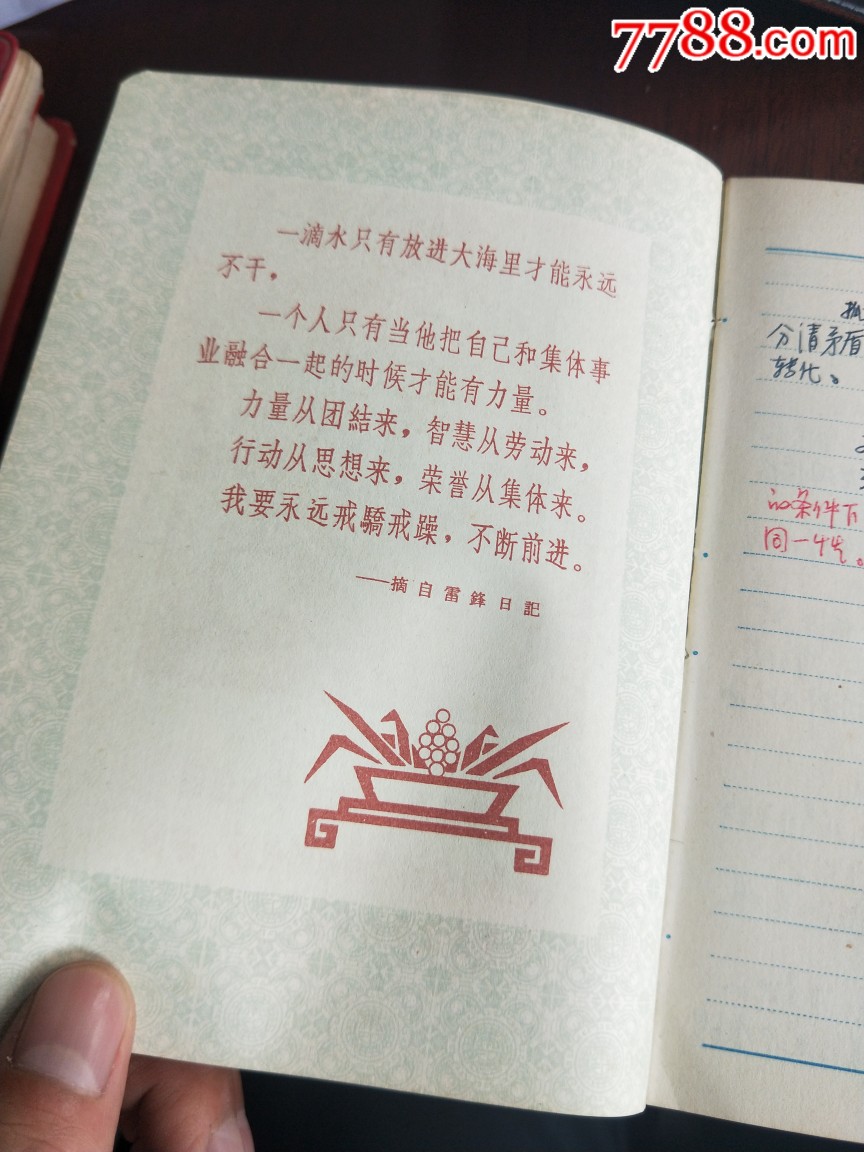 7788.com
一滴水只有放进大海里才能永远
不干.
一个人只有当他把自己和集体事
业融合一起的时候才能有力量。
力量从团結来，智慧从劳动来，
行动从思想来，荣誉从集体来。
我要永远戒驕戒躁，不断前进。
——摘自雷鋒日記
分清矛盾
转化。
的条件下
同一性。